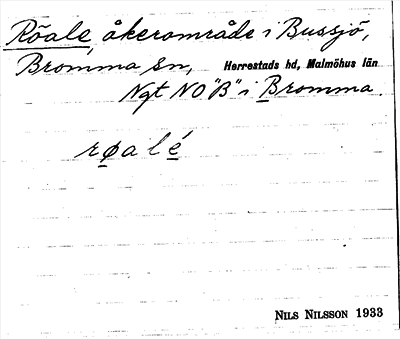 Röale, åkerområde i Bussjö,
Bromma sn, Herrestads hd, Malmöhus län
Ngt NO "B" i Bromma.
røalé
NILS NILSSON 1933